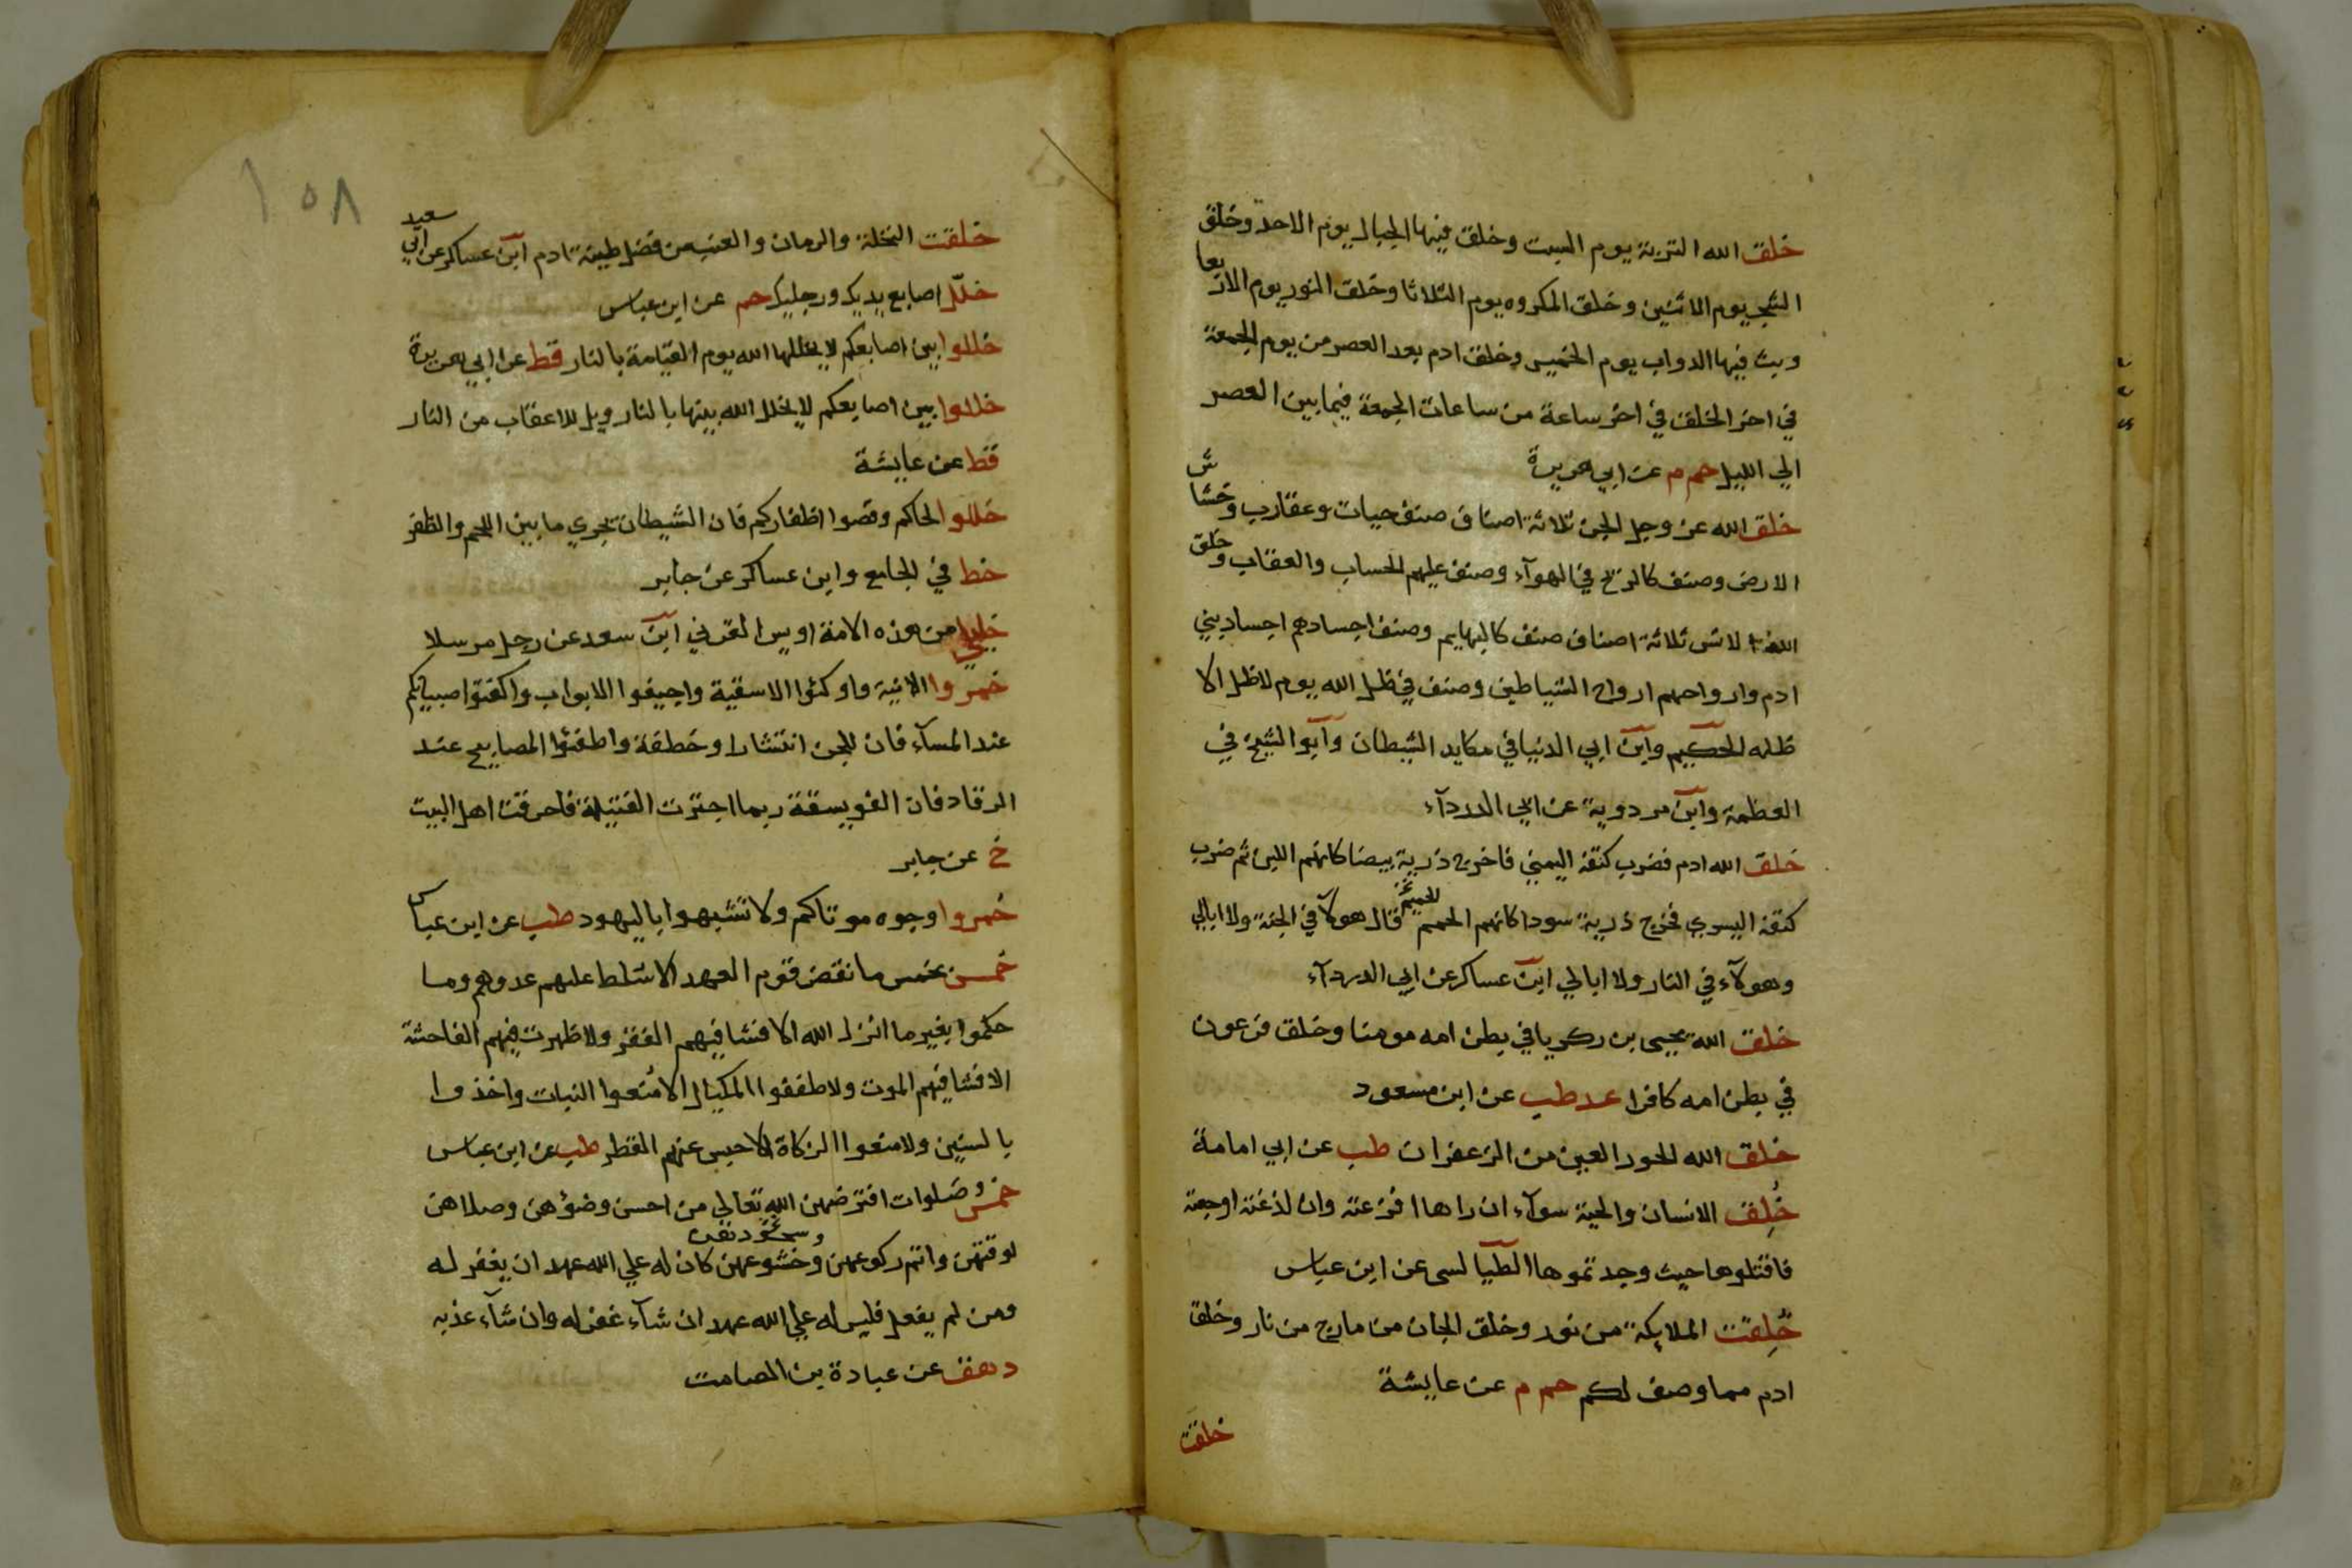 خلق الله التربة يوم السبت وخلق فيها الجبال يوم الاحد وخلق
الشجر يوم الاثنين وخلق المكروه يوم الثلاثا وخلق النور يوم الاربعا
وبث فيها الدواب يوم الخميس وخلق ادم بعد العصر من يوم الجمعة
في اخر الخلق في اخر ساعة من ساعات الجمعة فيما بين العصر
الي الليل حم م عن ابي هريرة
خلق الله عز وجل الجن ثلاثة اصناف صنف حيات وعقارب وخشاش
الارض وصنف كالريح في الهوآء وصنف عليهم الحساب والعقاب وخلق
الله الانس ثلاثة اصناف صنف كالبهايم وصنف اجسادهم اجساد بني
ادم وارواحهم ارواح الشياطين وصنف في ظل الله يوم لا ظل الا
ظله الحكيم وابن ابي الدنيا في مكايد الشيطان وابو الشيخ في
العظمة وابن مردوية عن ابي الدردآء
خلق الله ادم فضرب كتفه اليمني فاخرج ذرية بيضا كانهم اللبن ثم ضرب
كتفه اليسري فخرج ذرية سودا كانهم الحمم قال هولآ في الجنة ولا ابالي
وهولآء في النار ولا ابالي ابن عساكر عن ابي الدردآء
خلق الله يحيى بن زكريا في بطن امه مومنا وخلق فرعون
في بطن امه كافرا عد طب عن ابن مسعود
خلق الله الحور العين من الزعفران طب عن ابي امامة
خُلِق الانسان والحية سوآء ان راها افزعته وان لذغته اوجعته
فاقتلوها حيث وجدتموها الطيالسى عن ابن عباس
خُلِقت الملايكة من نور وخلق الجان من مارج من نار وخلق
ادم مما وصف لكم حم م عن عايشة
خلقت
١٥٨
خلقت النخلة والرمان والعنب من فضل طينة ادم ابن عساكر عن ابي سعيد
خلّل اصابع يديك ورجليك حم عن ابن عباس
خللوا بين اصابعكم لا يخللها الله يوم القيامة بالنار قط عن ابي هريرة
خللوا بين اصابعكم لا يخلل الله بينها بالنار ويل للاعقاب من النار
قط عن عايشة
خللوا لحاكم وقصوا اظفاركم فان الشيطان يجري ما بين اللحم والظفر
خط في الجامع وابن عساكر عن جابر
خليلي من هذه الامة اويس القرني ابن سعد عن رجل مرسلا
خمّروا الانية واوكئوا الاسقية واجيفوا الابواب واكفتوا صبيانكم
عند المسآء فان للجن انتشارا وخطفة واطفئوا المصابيح عند
الرقاد فان الفويسقة ربما اجترت الفتيلة فاحرقت اهل البيت
خ عن جابر
خمروا وجوه موتاكم ولا تشبهوا باليهود طب عن ابن عباس
خمس بخمس ما نقض قوم العهد الا سلط عليهم عدوهم وما
حكموا بغير ما انزل الله الا فشا فيهم الفقر ولا ظهرت فيهم الفاحشة
الا فشا فيهم الموت ولا طففوا المكيال الا مُنعوا النبات واخذوا
بالسنين ولا منعوا الزكاة الا حبس عنهم القطر طب عن ابن عباس
خمس صلوات افترضهن الله تعالي من احسن وضؤهن وصلاهن
لوقتهن واتم ركوعهن وسجودهن وخشوعهن كان له علي الله عهد ان يغفر له
ومن لم يفعل فليس له علي الله عهد ان شآء غفر له وان شآء عذبه
د هق عن عبادة بن الصامت